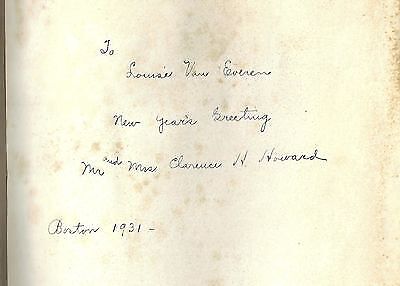 To
Louise Van Everen
New Year's Greeting
Mr and Mrs Clarence H. Howard
Boston 1931 -